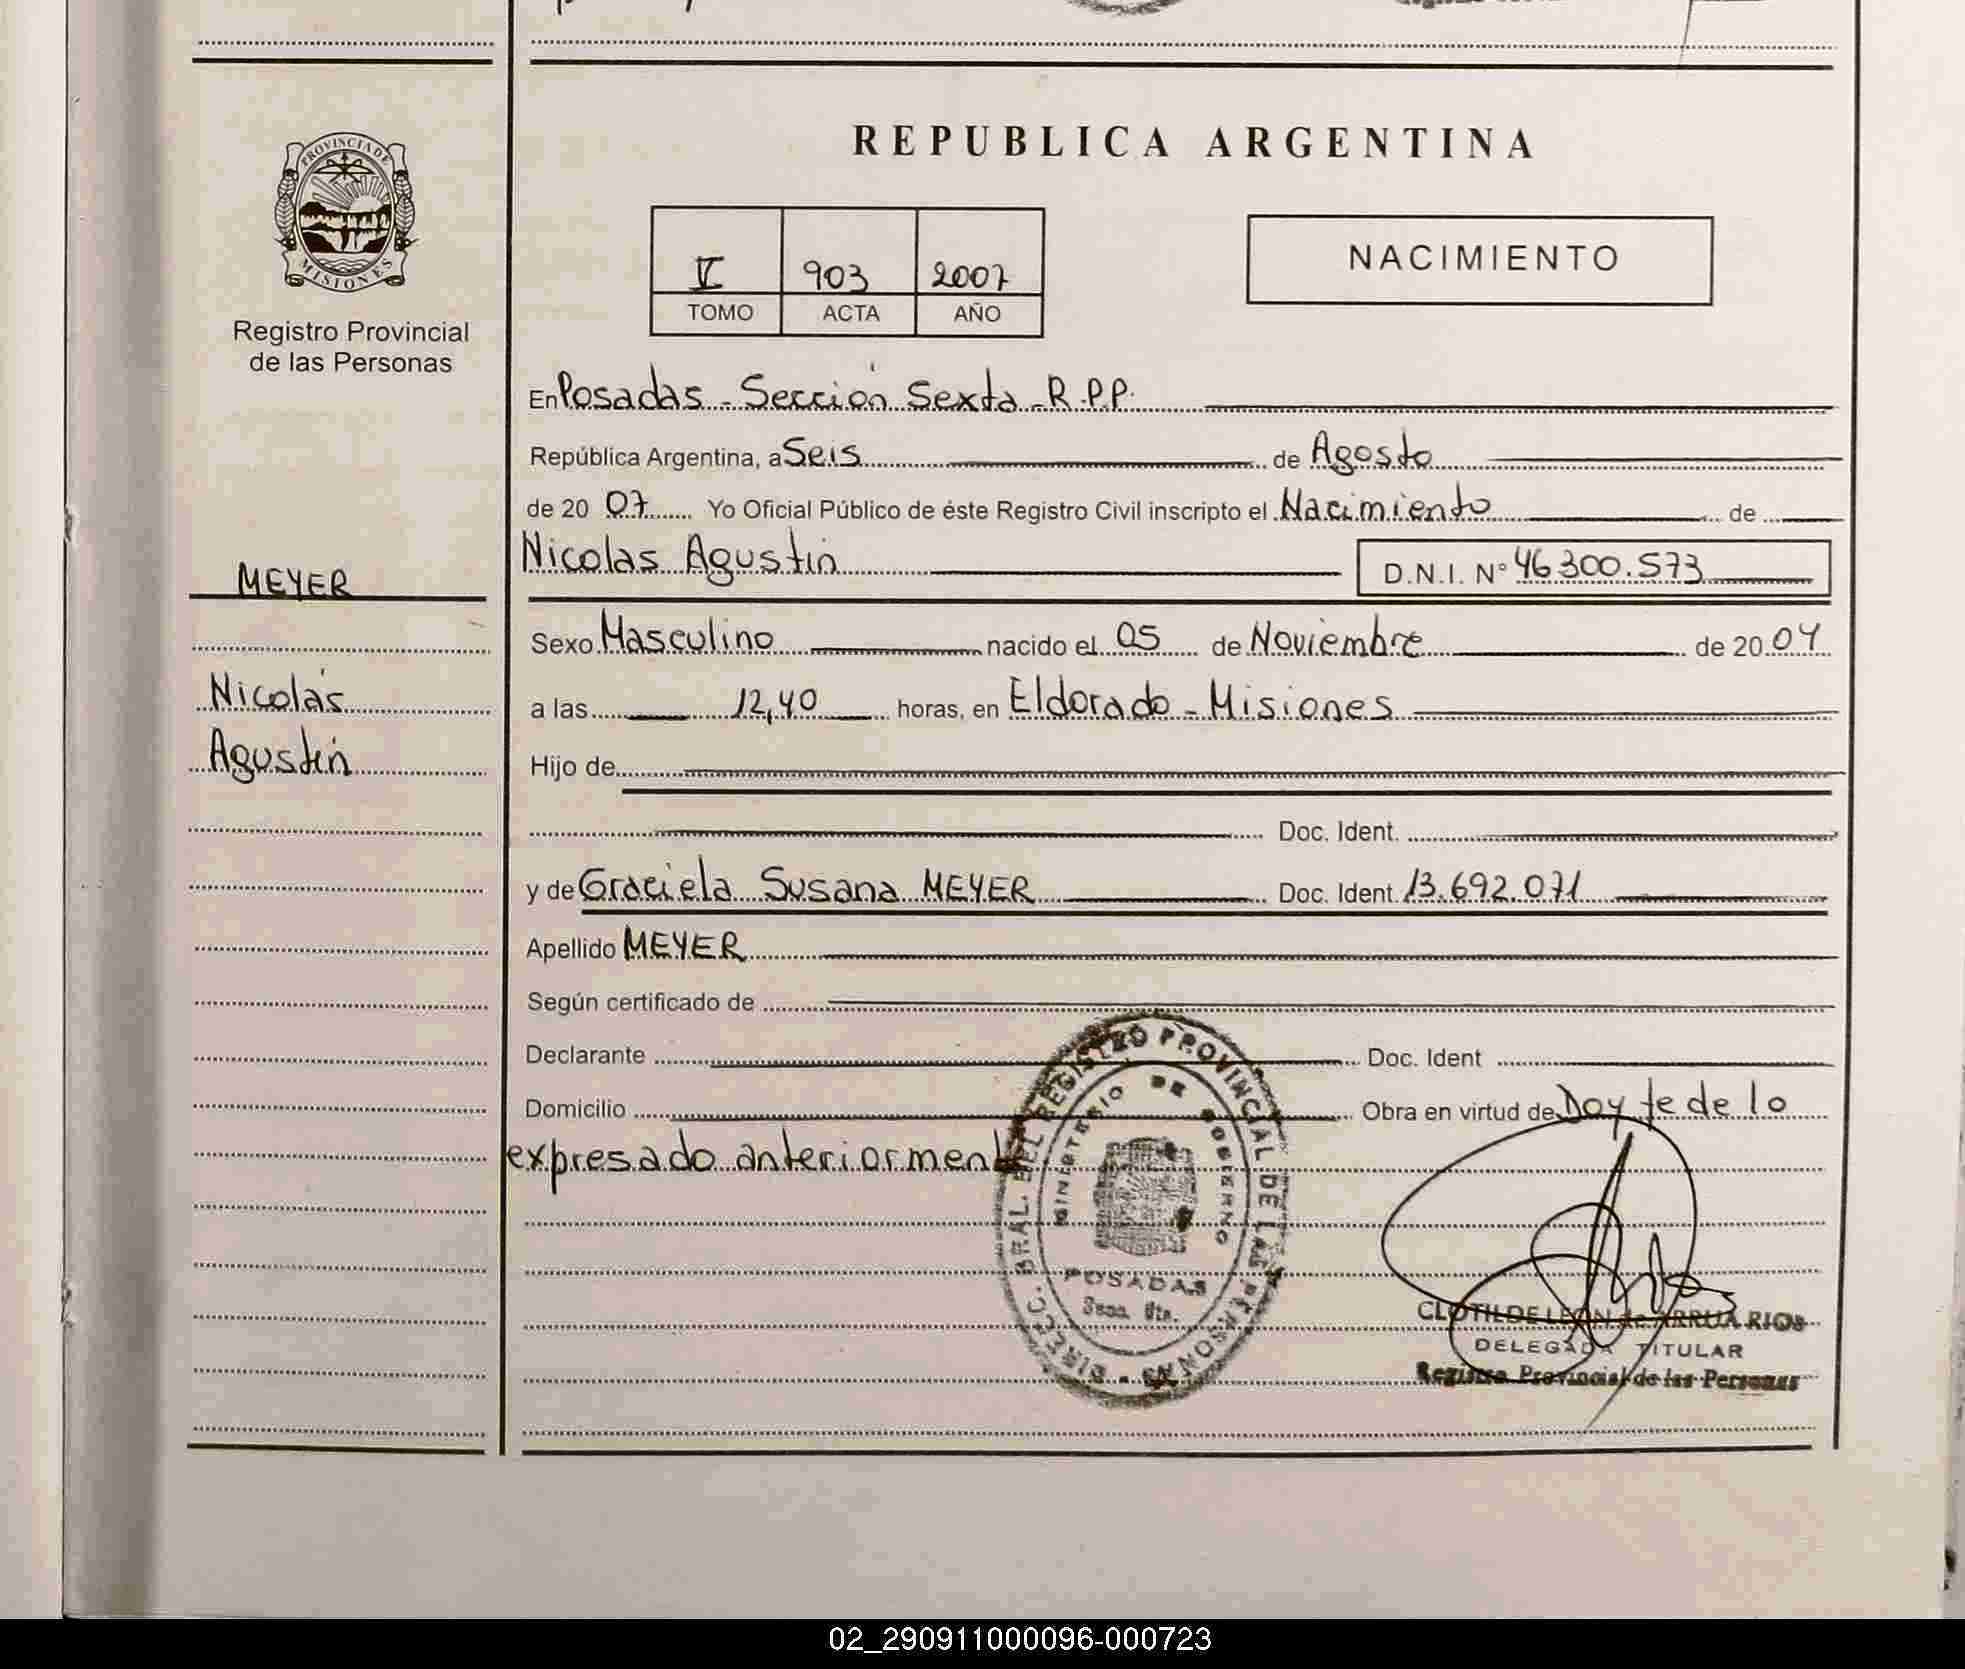 PROVINCIA DE
MISIONES
Registro Provincial
de las Personas
MEYER
Nicolás
Agustín
REPUBLICA ARGENTINA
V 903 2007
TOMO ACTA AÑO
NACIMIENTO
En Posadas - Sección Sexta - R.P.P.
República Argentina, a Seis de Agosto
de 20 07 Yo Oficial Público de éste Registro Civil inscripto el Nacimiento de
Nicolas Agustin D.N.I. N° 46300.573
Sexo Masculino nacido el 05 de Noviembre de 20 04
a las 12,40 horas, en Eldorado - Misiones
Hijo de
Doc. Ident.
y de Graciela Susana MEYER Doc. Ident. 13.692.071
Apellido MEYER
Según certificado de
Declarante Doc. Ident
Domicilio Obra en virtud de Doy fe de lo
expresado anteriormente
DIRECC. GRAL. DEL REGISTRO PROVINCIAL DE LAS PERSONAS
MINISTERIO DE GOBIERNO
POSADAS
CLOTILDE LEON de ARRUA RIOS
DELEGADA TITULAR
Registro Provincial de las Personas
02_290911000096-000723